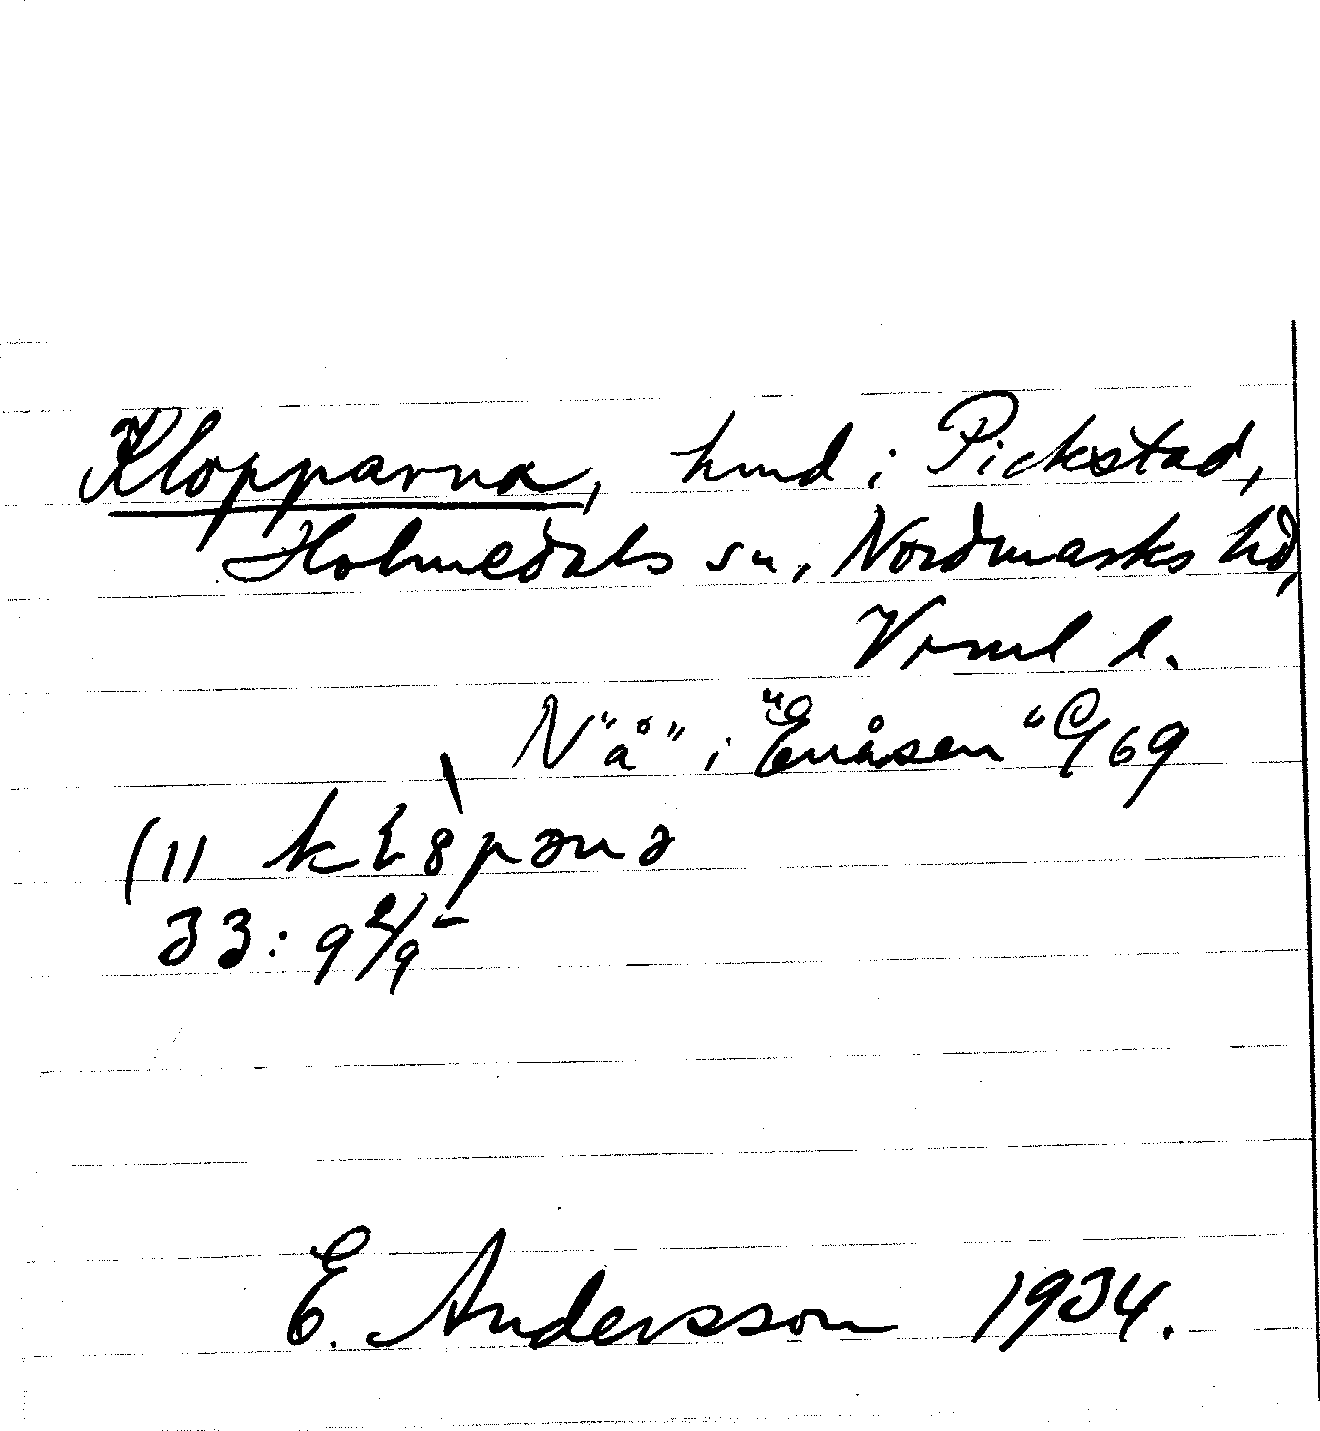 Klopparna, hmd i Pickstad,
Holmedals sn, Nordmarks hd,
Vrml l.
N "å" i "Enåsen"
33:9
E. Andersson 1934.